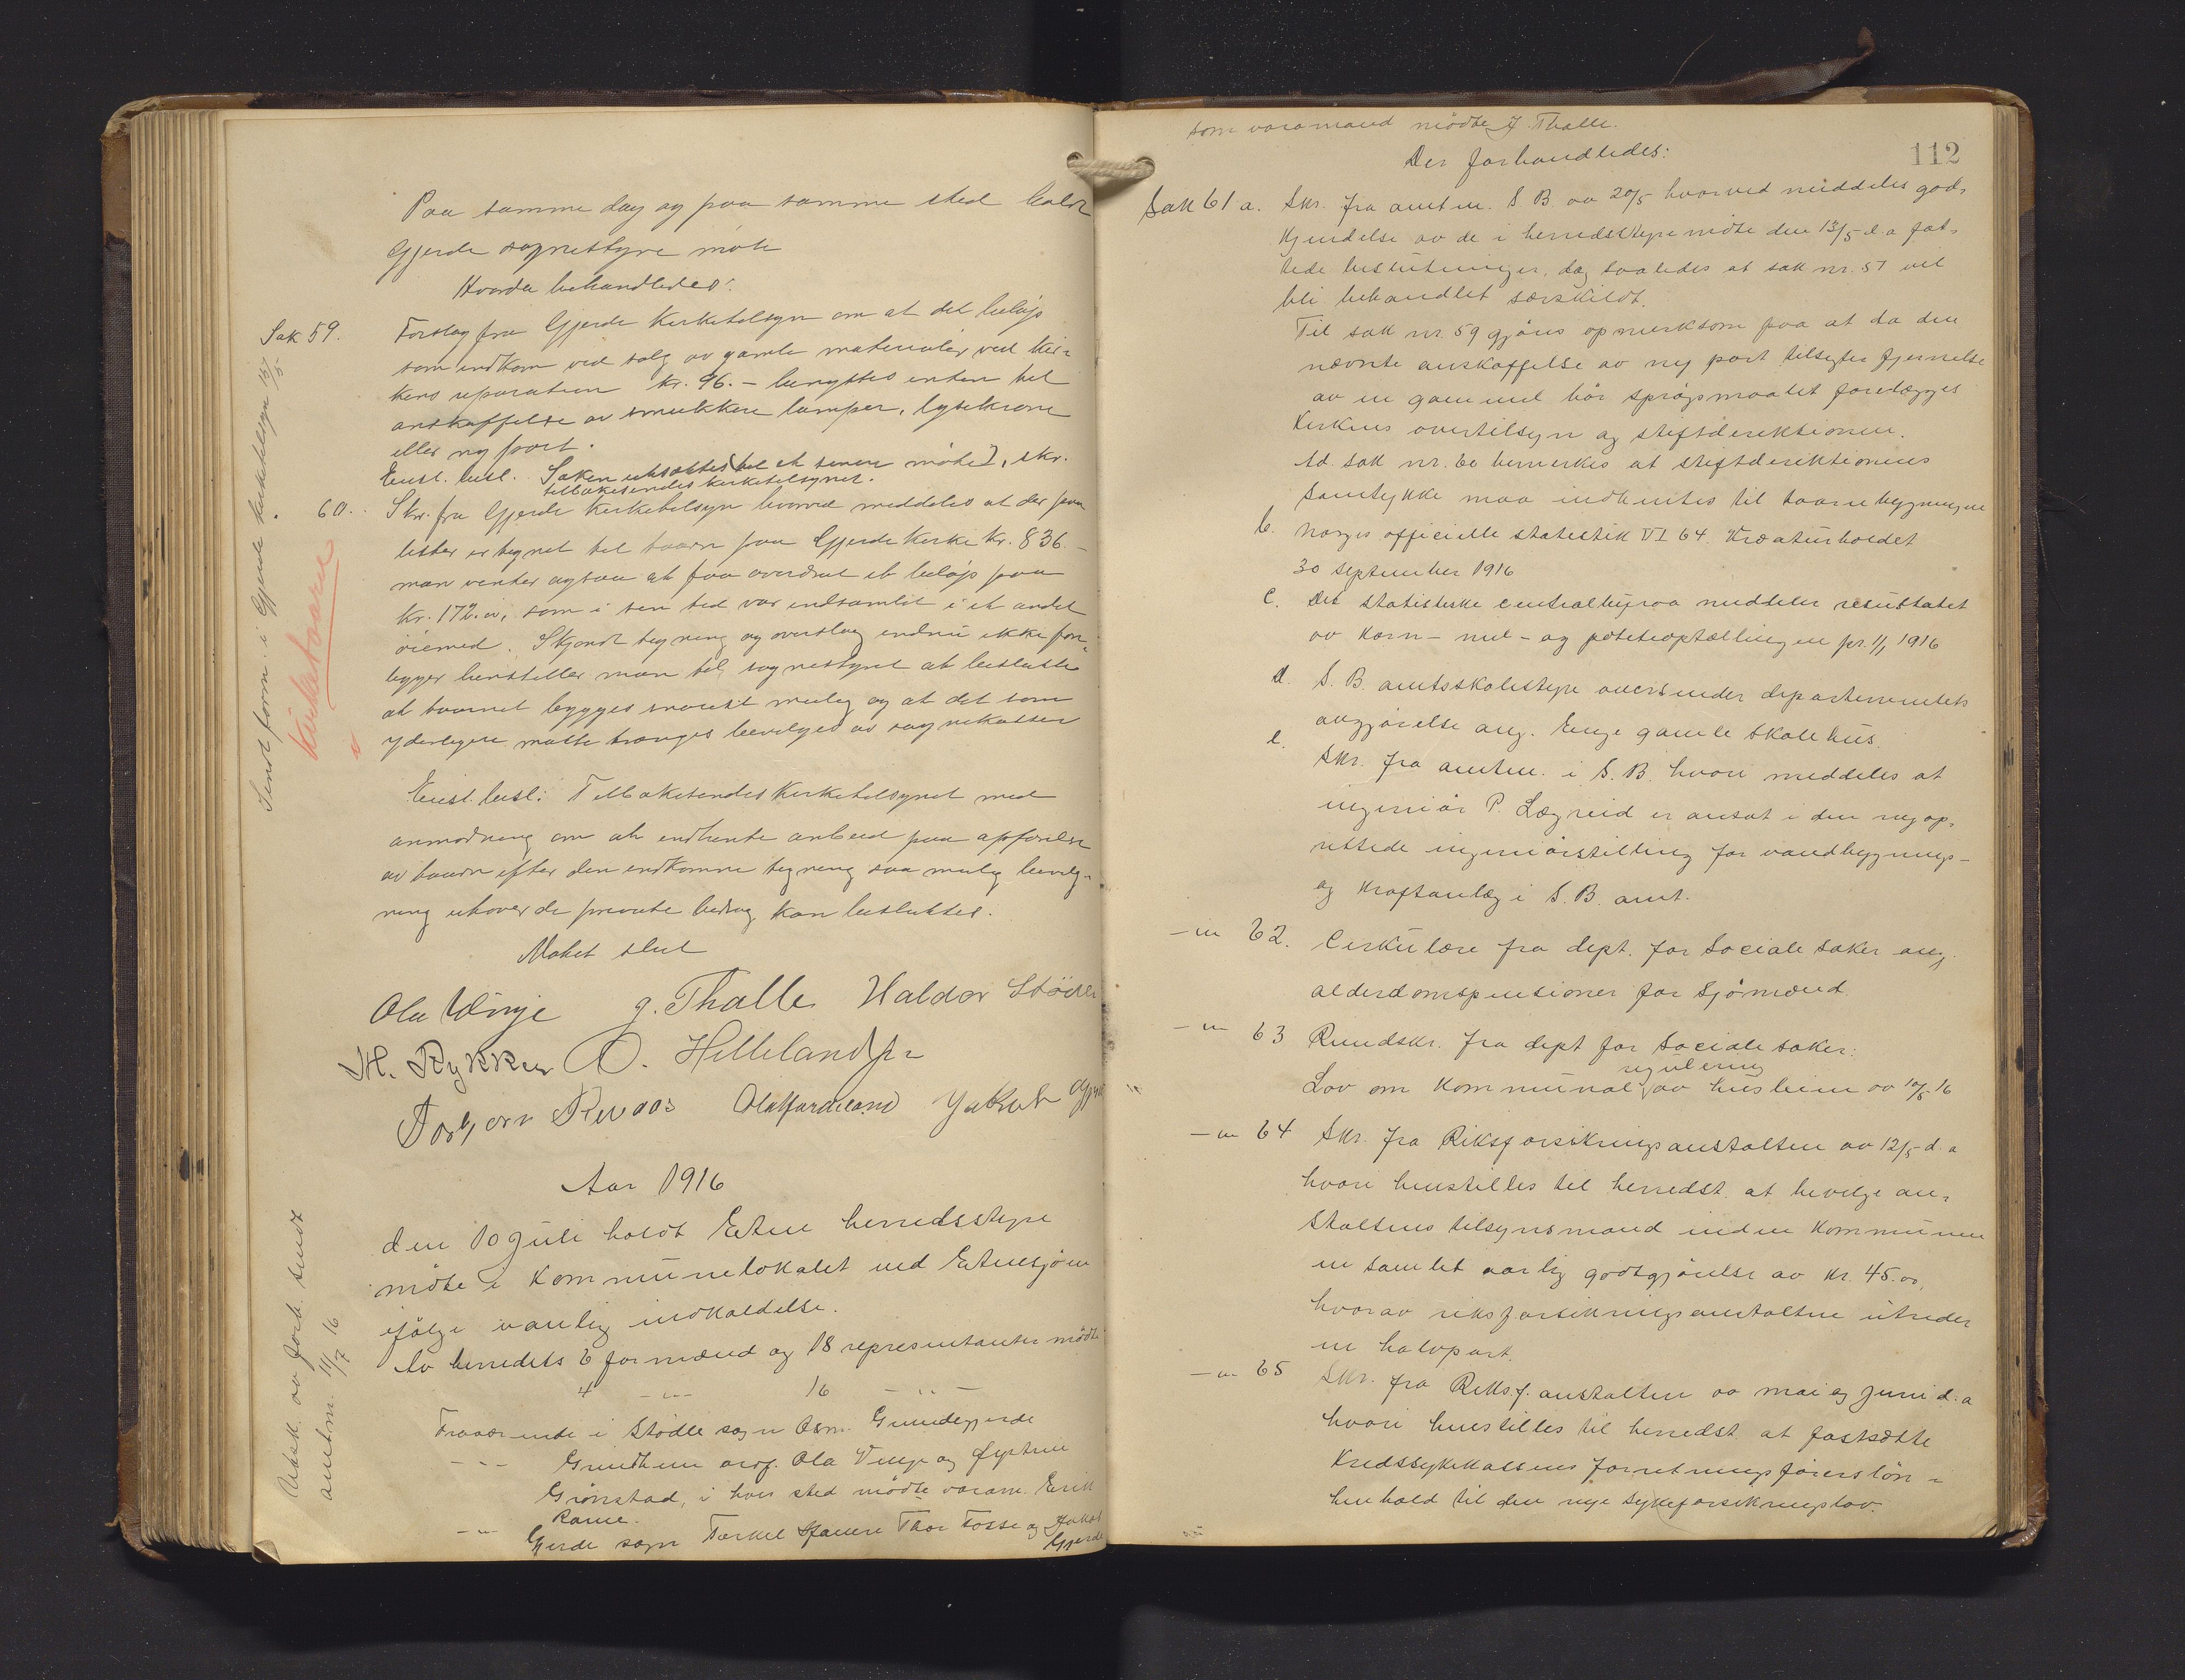 Paa samme dag og paa samme sted holdt
Gjerde sognestyre møte
Hvorda behandledes:
Sak 59. Forslag fra Gjerde Kirketilsyn om at det beløp
som indkom ved salg av gamle materialer ved kir-
kens reparation kr. 96.- benyttes enten til
anskaffelse av smukkere lamper, lysekrone
eller ny port.
Enst. besl. Saken utsættes til et senere møte, skr.
tilbakesendes kirketilsynet.
60. Skr. fra Gjerde Kirketilsyn hvorved meddeles at der paa
lister er tegnet til taarn paa Gjerde Kirke kr. 836.-
man venter ogsaa at faa overdrat et beløp paa
kr. 172.00, som i sin tid var indsamlet i et andet
øiemed. Skjønt tegning og overslag endnu ikke fore-
ligger henstiller man til sognestyret at beslutte
at taarnet bygges snarest mulig og at det som
yderligere maatte trænges bevilges av sognekassen
Enst. besl: Tilbakesendes Kirketilsynet med
anmodning om at indhente anbud paa opførelse
av taarn efter den indkomne tegning saa mulig bevilg-
ning utover de private bidrag kan besluttes.
Møtet slut
Ola Vinje g. Thalle Haldor Stødle
M. Rykken O. Hilleland jr
Torbjørn Rivaas Ola Hardeland Jakob Gjerde
Aar 1916
den 10 Juli holdt Etne herredsstyre
møte i Kommunelokalet ved Etnesjøen
ifølge vanlig indkaldelse.
Av herredets 6 formænd og 18 representanter mødte
4 - " - 16 - " -
Fraværende i Stødle sogn Asm. Grindegjerde
- " - Grindheim ordf. Ola Vinje og Øystein
Grønstad, i hvis sted mødte varam. Erik
Rame.
- " - Gjerde sogn Torkel Håland Thor Fosse og Jakob
Gjerde
Sendt form. i Gjerde kirketilsyn 15/5
Kirketaarn
Utskr. av forh. sendt
amtm. 11/7 16
som varamand mødte J. Thalle.
112
Der forhandledes:
Sak 61 a. Skr. fra amtm. S B av 20/5 hvorved meddeles god-
kjendelse av de i herredsstyre møte den 13/5 d.a fat-
tede beslutninger, dog saaledes at sak nr. 57 vil
bli behandlet særskildt.
Til sak nr. 59 gjøres opmerksom paa at da den
nævnte anskaffelse av ny port tilsigter fjernelse
av en gammel bør spørgsmaalet forelægges
Kirkens overtilsyn og stiftsdirektionen.
Ad. sak nr. 60 bemerkes at stiftsdirektionens
samtykke maa indhentes til taarnbygningen
b. Norges officielle statistik VI 64. Kreaturholdet
30 september 1916
c. Det statistiske centralbyraa meddeler resultatet
av korn- mel- og potetoptællingen pr. 1/1 1916
d. S. B. amtsskolestyre oversender departementets
avgjørelse ang. Enge gamle skolehus.
e. Skr. fra amtm. i S. B. hvori meddeles at
ingeniør P. Lægreid er ansat i den nyop-
rettede ingeniørstilling for vandbygnings-
og kraftanlæg i S. B. amt.
- " - 62. Cirkulære fra dept. for sociale saker ang.
alderdomspensioner for sjømænd.
- " - 63 Rundskr. fra dept for sociale saker:
regulering
Lov om kommunal av husleien av 10/5 16
- " - 64 Skr. fra Riksforsikringsanstalten av 12/5 d.a
hvori henstilles til herredst. at bevilge an-
staltens tilsynsmand inden kommunen
en samlet aarlig godtgjørelse av kr. 45.00,
hvorav riksforsikringsanstalten utreder
en halvpart.
- " - 65 Skr. fra Riksf. anstalten av mai og juni d.a
hvori henstilles til herredst. at fastsætte
Kredssykekassens forretningsførers løn i
henhold til den nye sykeforsikringslov.